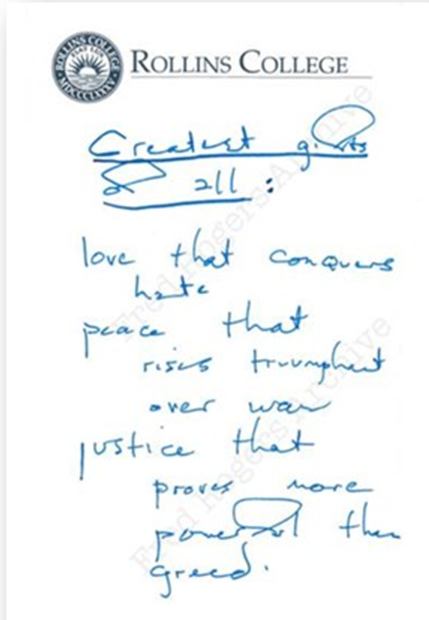 ROLLINS COLLEGE
ROLLINS COLLEGE
FIAT LUX
MDCCCLXXXV
Greatest gifts
of all:
love that conquers
hate
peace that
rises triumphant
over war
justice that
proves more
powerful than
greed.
Fred Rogers Archive
Fred Rogers Archive